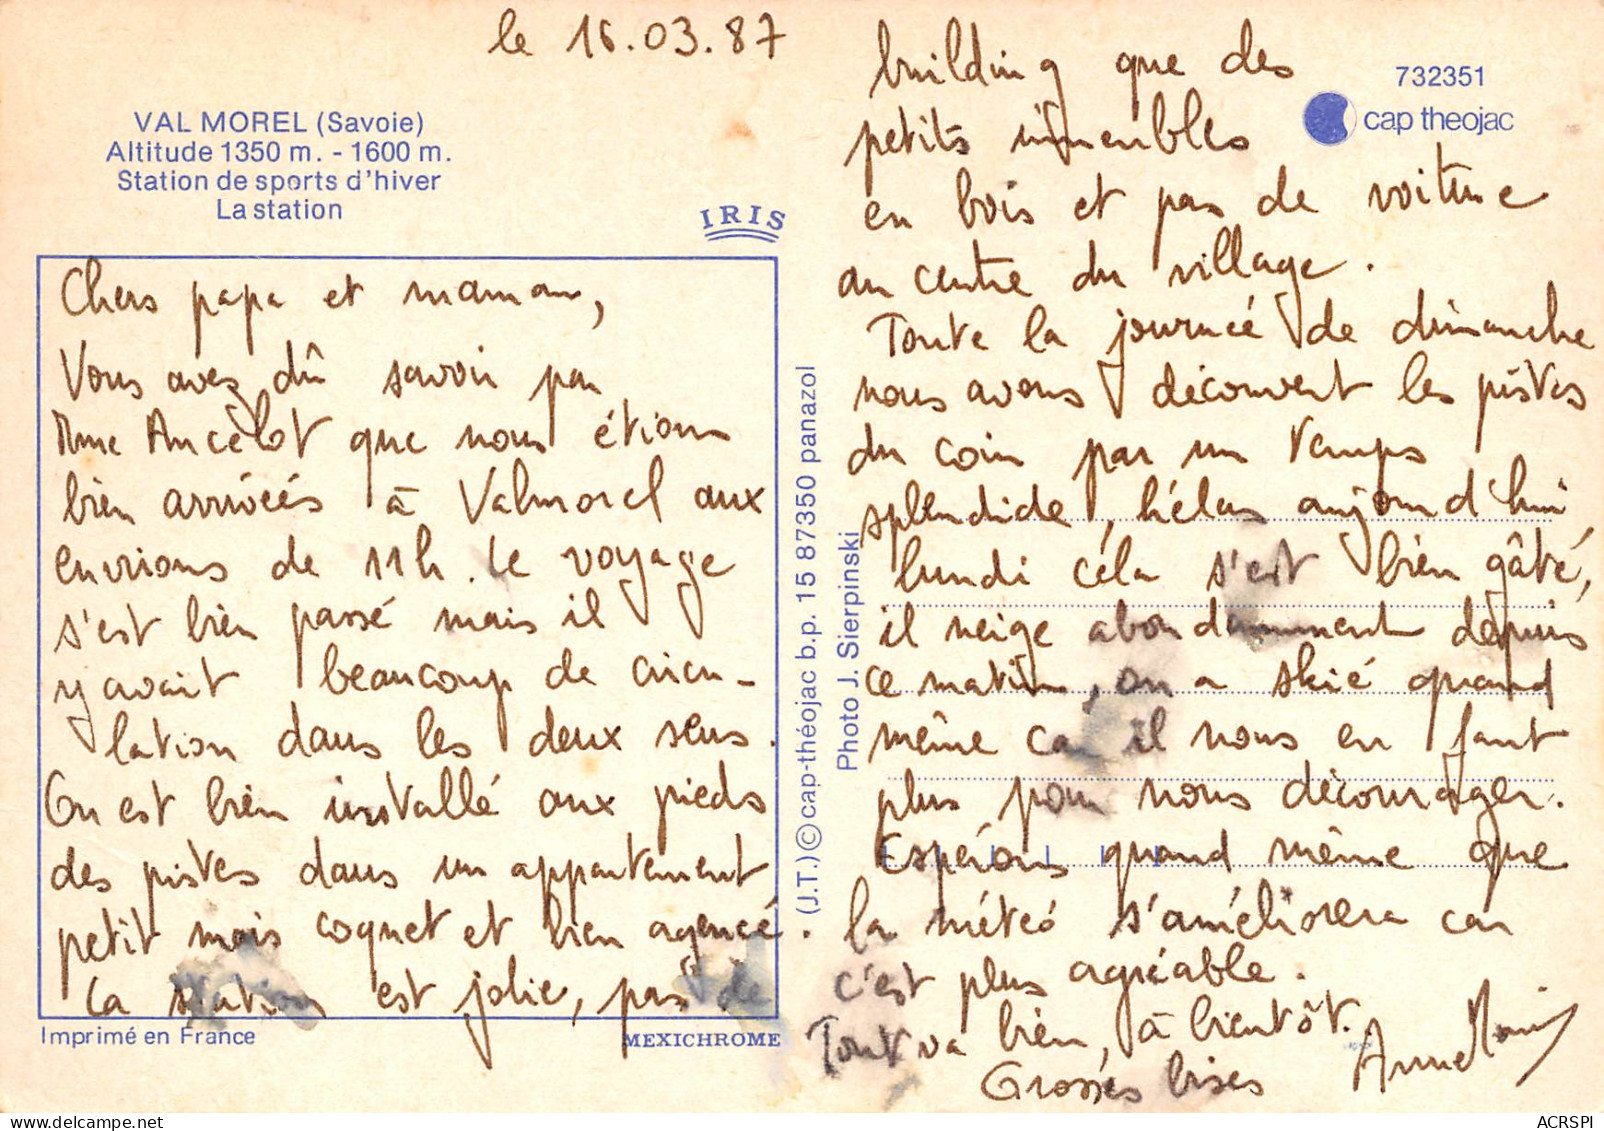 le 16.03.87
VAL MOREL (Savoie)
Altitude 1350 m. - 1600 m.
Station de sports d'hiver
La station
IRIS
Chers papa et maman,
Vous avez dû savoir par
Mme Ancelot que nous étions
bien arrivées à Valmorel aux
environs de 11h. Le voyage
s'est bien passé mais il
y avait beaucoup de circu-
lation dans les deux sens.
On est bien installé aux pieds
des pistes dans un appartement
petit mais coquet et bien agencé.
La station est jolie, pas de
Imprimé en France
MEXICHROME
(J.T.) © cap-théojac b.p. 15 87350 panazol
Photo J. Sierpinski
732351
cap theojac
building que des
petits immeubles
en bois et pas de voiture
au centre du village.
Toute la journée de dimanche
nous avons découvert les pistes
du coin par un temps
splendide, hélas aujourd'hui
lundi céla s'est bien gâté,
il neige abondamment depuis
ce matin, on a skié quand
même car il nous en faut
plus pour nous décourager.
Espérons quand même que
la météo s'améliorera car
c'est plus agréable.
Tout va bien, à bientôt.
Grosses bises
Anne Marie
ACRSPI